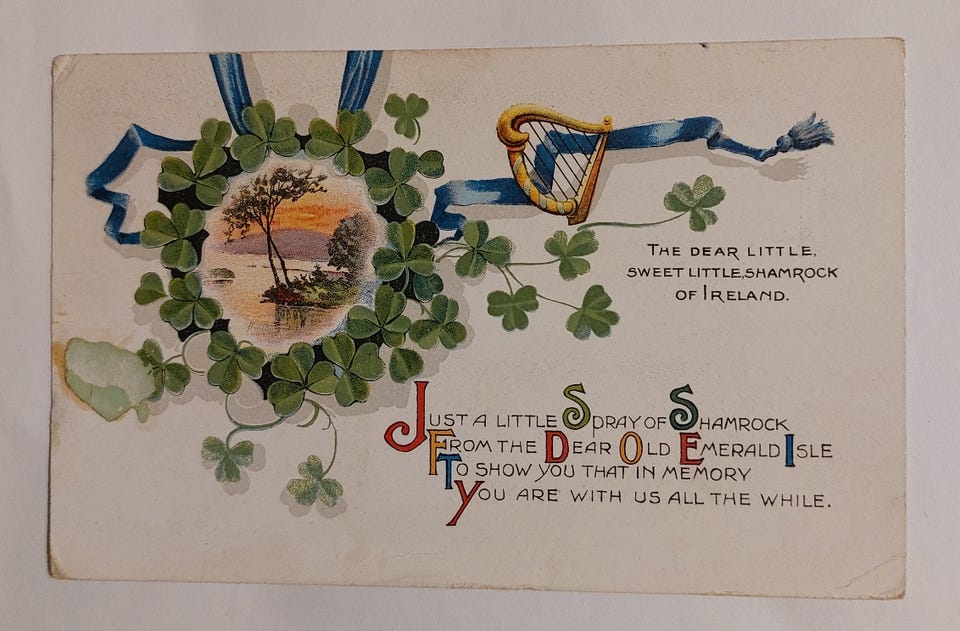 THE DEAR LITTLE,
SWEET LITTLE,SHAMROCK
OF IRELAND.
JUST A LITTLE SPRAY OF SHAMROCK
FROM THE DEAR OLD EMERALD ISLE
TO SHOW YOU THAT IN MEMORY
YOU ARE WITH US ALL THE WHILE.